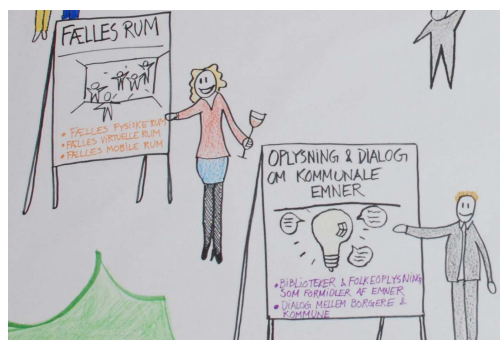 FÆLLES RUM
• FÆLLES FYSISKE RUM
• FÆLLES VIRTUELLE RUM
• FÆLLES MOBILE RUM
OPLYSNING & DIALOG
OM KOMMUNALE
EMNER
• BIBLIOTEKER & FOLKEOPLYSNING
SOM FORMIDLER AF EMNER
• DIALOG MELLEM BORGERE &
KOMMUNE